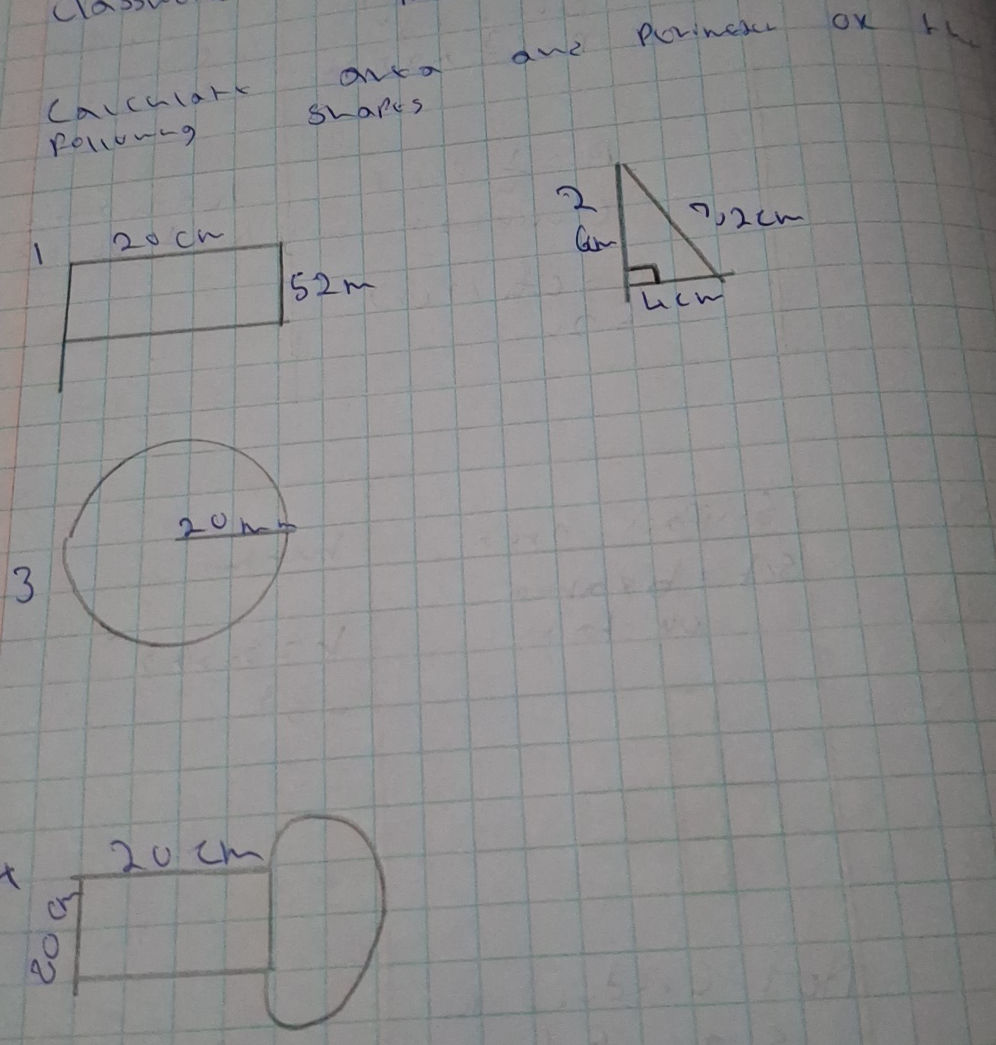 Calculate area and Perimeter of the
following shapes
1
20 cm
52m
2
6m
7,2cm
4cm
3
20mm
20 cm
20 cm